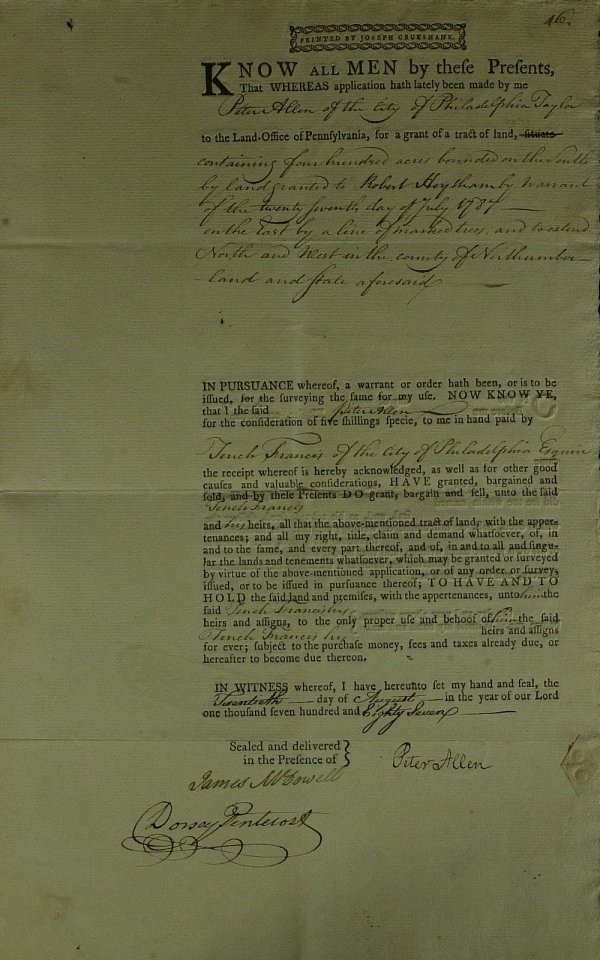 46.
PRINTED BY JOSEPH CRUKSHANK.
KNOW ALL MEN by theſe Preſents,
That WHEREAS application hath lately been made by me
Peter Allen of the City of Philadelphia Taylor
to the Land-Office of Pennſylvania, for a grant of a tract of land, ſituate
containing four hundred acres bounded on the South
by land granted to Robert by Warrant
of the twenty ſeventh day of July 1787
on the East by a line of marked trees, and to extend
North and West in the county of Northumber-
land and State aforesaid
IN PURSUANCE whereof, a warrant or order hath been, or is to be
iſſued, for the ſurveying the ſame for my uſe. NOW KNOW YE,
that I the ſaid Peter Allen
for the conſideration of five ſhillings ſpecie, to me in hand paid by
Tench Francis of the City of Philadelphia Esquire
the receipt whereof is hereby acknowledged, as well as for other good
cauſes and valuable conſiderations, HAVE granted, bargained and
ſold, and by theſe Preſents DO grant, bargain and ſell, unto the ſaid
Tench Francis
and his heirs, all that the above-mentioned tract of land, with the apper-
tenances; and all my right, title, claim and demand whatſoever, of, in
and to the ſame, and every part thereof, and of, in and to all and ſingu-
lar the lands and tenements whatſoever, which may be granted or ſurveyed
by virtue of the above-mentioned application, or of any order or ſurvey,
iſſued, or to be iſſued in purſuance thereof; TO HAVE AND TO
HOLD the ſaid land and premiſes, with the appertenances, unto him the
ſaid Tench Francis his
heirs and aſſigns, to the only proper uſe and behoof of him the ſaid
Tench Francis his heirs and aſſigns
for ever; ſubject to the purchaſe money, fees and taxes already due, or
hereafter to become due thereon.
IN WITNESS whereof, I have hereunto ſet my hand and ſeal, the
Twentieth day of August in the year of our Lord
one thouſand ſeven hundred and Eighty Seven
Sealed and delivered
in the Preſence of
Peter Allen
James McDowell
Dorsey Pentecost